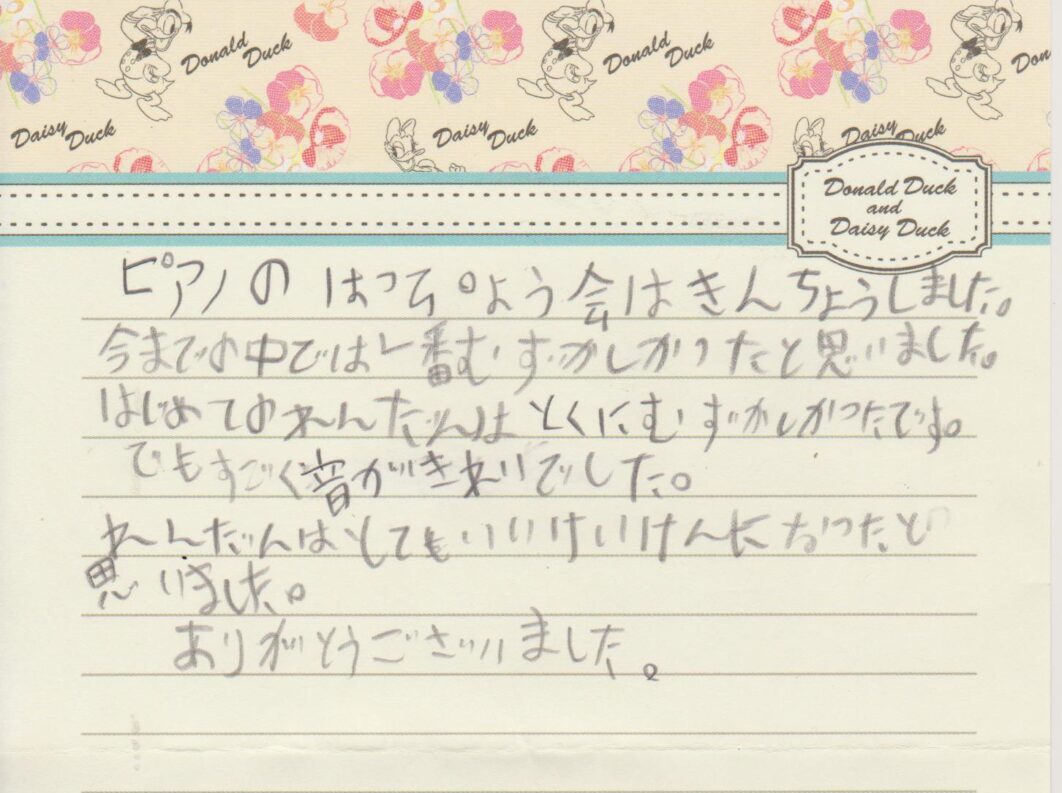 Donald Duck
Donald Duck
Don
Daisy Duck
Daisy Duck
Daisy Duck
Donald Duck
and
Daisy Duck
ピアノの はっぴょう会はきんちょうしました。
今までの中では一番むずかしかったと思いました。
はじめてのれんだんは とくにむずかしかったです。
でもすごく音がきれいでした。
れんだんはとてもいいけいけんになったと
思いました。
ありがとうございました。